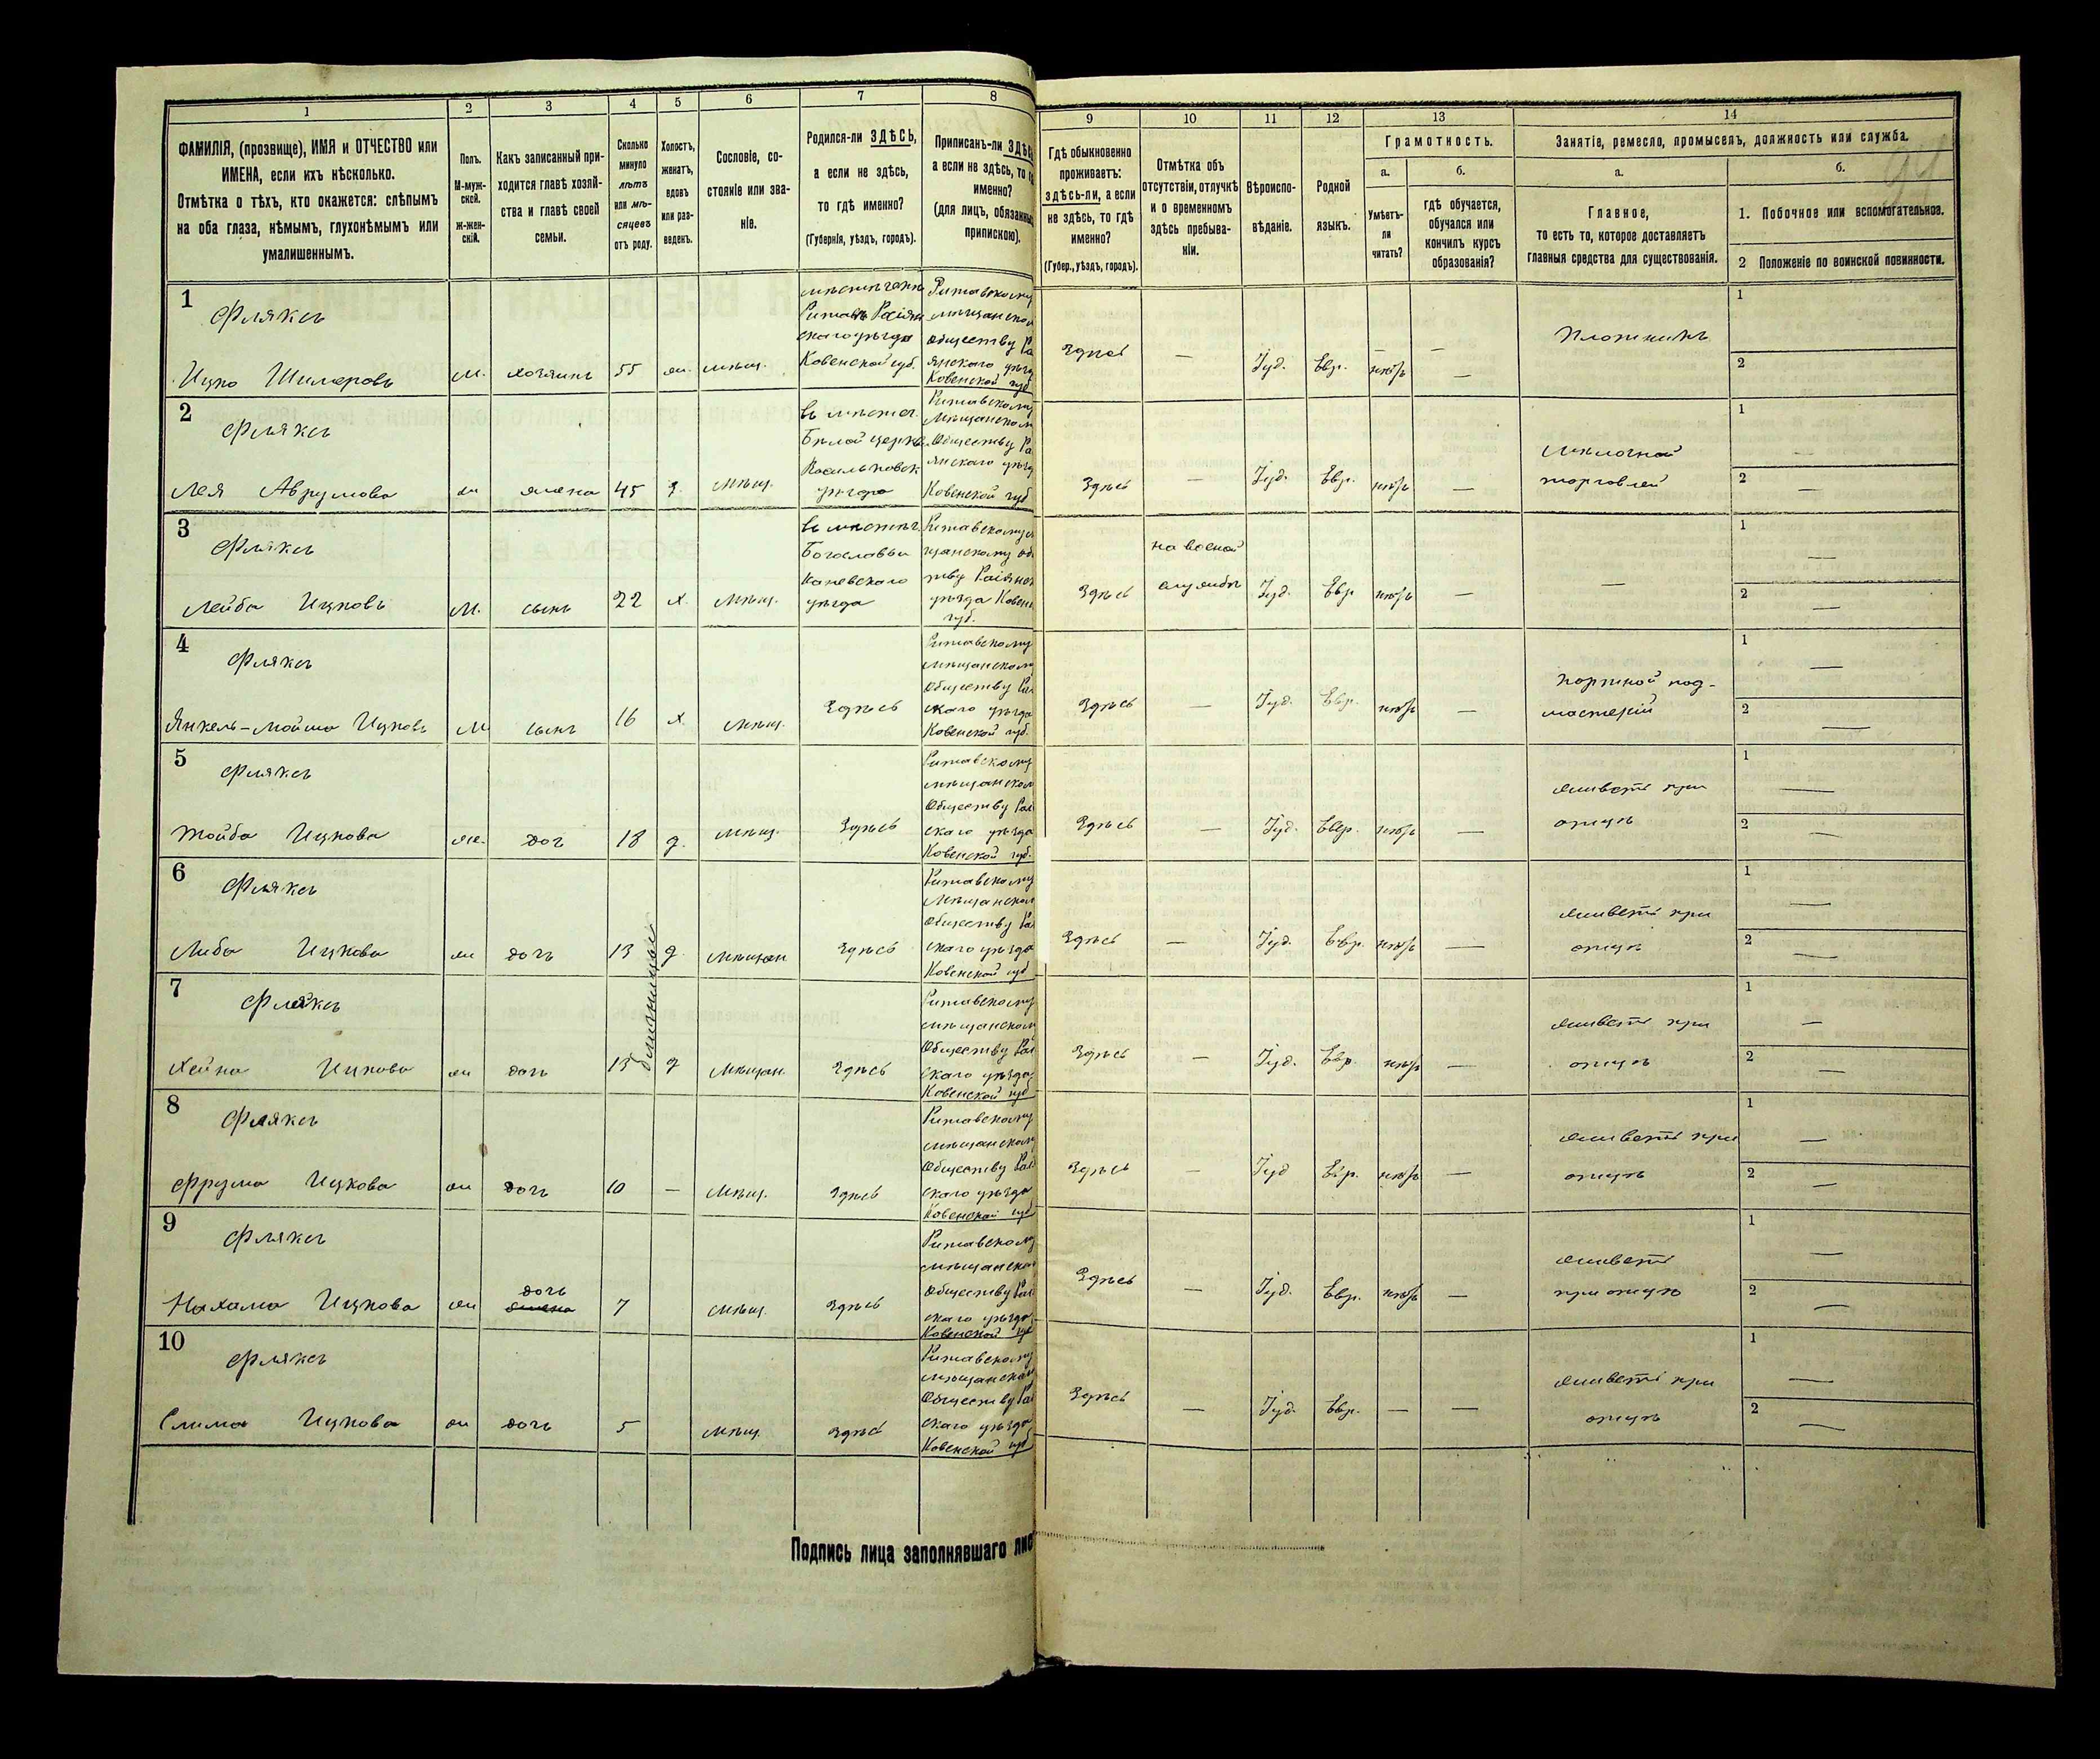 1
2
3
4
5
6
7
8
9
10
11
12
13
14
ФАМИЛІЯ, (прозвище), ИМЯ и ОТЧЕСТВО или
ИМЕНА, если ихъ нѣсколько.
Отмѣтка о тѣхъ, кто окажется: слѣпымъ
на оба глаза, нѣмымъ, глухонѣмымъ или
умалишеннымъ.
Полъ.
М-муж-
ской.
ж-жен-
скій.
Какъ записанный при-
ходится главѣ хозяй-
ства и главѣ своей
семьи.
Сколько
минуло
лѣтъ
или мѣ-
сяцевъ
отъ роду.
Холостъ,
женатъ,
вдовъ
или раз-
веденъ.
Сословіе, со-
стояніе или зва-
ніе.
Родился-ли ЗДѢСЬ,
а если не здѣсь,
то гдѣ именно?
(Губернія, уѣздъ, городъ).
Приписанъ-ли ЗДѢСЬ
а если не здѣсь, то
именно?
(для лицъ, обязанны
припискою).
Гдѣ обыкновенно
проживаетъ:
здѣсь-ли, а если
не здѣсь, то гдѣ
именно?
(Губер., уѣздъ, городъ).
Отмѣтка объ
отсутствіи, отлучкѣ
и о временномъ
здѣсь пребыва-
ніи.
Вѣроиспо-
вѣданіе.
Родной
языкъ.
Грамотность.
а.
Умѣетъ-
ли
читать?
б.
гдѣ обучается,
обучался или
кончилъ курсъ
образованія?
Занятіе, ремесло, промыселъ, должность или служба.
а.
Главное,
то есть то, которое доставляетъ
главныя средства для существованія.
б.
1. Побочное или вспомогательное.
2 Положеніе по воинской повинности.
1
Фляксъ
Ицко Шмеровъ М. хозяинъ 55 ж. мѣщ.
Ковенской губ.
Ритавскому
мѣщанско
обществу Ра
Ковенской губ
Здѣсь — Іуд. Евр. нѣтъ —
Плотникъ
1
2
2
Фляксъ
Лея Аврумова ж жена 45 з. мѣщ.
въ мѣстеч.
Бѣлой церкв
Васильковск
уѣзда
Ритавскому
Мѣщанском
Обществу Ра
янскаго уѣзд
Ковенской губ
Здѣсь — Іуд. Евр. нѣтъ —
Мелочной
торговлей
1 —
2 —
3
Фляксъ
Лейба Ицковъ М. сынъ 22 х. мѣщ.
въ мѣстеч.
Каневскаго
уѣзда
губ.
Здѣсь
на военой
службѣ
Іуд. Евр нѣтъ — —
1 —
2 —
4
Фляксъ
Янкель-Мойша Ицковъ М сынъ 16 х. мѣщ. Здѣсь
Ритавскому
мѣщанском
Обществу Ра
скаго уѣзда
Ковенской губ.
Здѣсь — Іуд. Евр. нѣтъ —
портной под-
мастерій
1 —
2 —
5
Фляксъ
Тойба Ицкова ж. доч 18 д. мѣщ. Здѣсь
Ритавскому
мѣщанском
Обществу Рас
скаго уѣзда
Ковенской губ.
Здѣсь — Іуд. Евр. нѣтъ —
живетъ при
отцѣ
1 —
2 —
6
Фляксъ
Либа Ицкова ж дочь 13 д. мѣщан Здѣсь
близнецы
Ритавскому
Мѣщанском
Обществу Ра
скаго уѣзда
Ковенской губ
Здѣсь — Іуд. Евр. нѣтъ —
живетъ при
отцѣ
1 —
2 —
7
Фляксъ
Хейна Ицкова ж дочь 13 д мѣщан. Здѣсь
Ритавскому
мѣщанском
Обществу Рас
скаго уѣзда
Ковенской губ
Здѣсь — Іуд. Евр. нѣтъ —
живетъ при
отцѣ
1 —
2 —
8
Фляксъ
Фрума Ицкова ж дочь 10 — мѣщ. Здѣсь
Ритавскому
мѣщанском
Обществу Рас
скаго уѣзда
Ковенской губ
Здѣсь — Іуд Евр. нѣтъ —
живетъ при
отцѣ
1 —
2 —
9
Фляксъ
дочь
Нахама Ицкова ж жена 7 мѣщ. Здѣсь
Ритавскому
мѣщанском
Обществу Рас
скаго уѣзда
Ковенской губ
Здѣсь — Іуд. Евр. нѣтъ —
живетъ
при отцѣ
1 —
2 —
10
Фляксъ
Слима Ицкова ж дочь 5 мѣщ. здѣсь
Ритавскому
мѣщанском
Обществу Рас
скаго уѣзда
Ковенской губ
Здѣсь — Іуд. Евр. — —
живетъ при
отцѣ
1 —
2 —
Подпись лица заполнявшаго лис